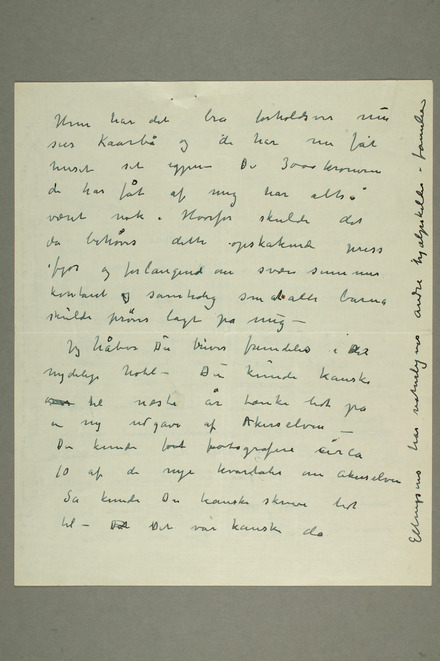 Hun har det bra forholdsvis nu
sier Kaarbø og de har nu fåt
huset sit igjen. De 3000 kronerne
de har fåt af mig har altså
været nok. Hvorfor skulde det
da behøves dette opskakende press
ifjor og forlangende om svære summer
kontant og samtidig små alle barna
skulde prøves lagt på mig —
Jeg håber Du trives fremdeles i det
nydelige hotel — Du kunde kanske
til næste år tænke lidt på
en ny udgave af Akerselven —
Du kunde fåt fotografere circa
10 af de nye kvartaler om Akerselven
Så kunde Du kanske skrive lidt
til — Det var kanske da
har naturligvis andre hjælpekilder i familien